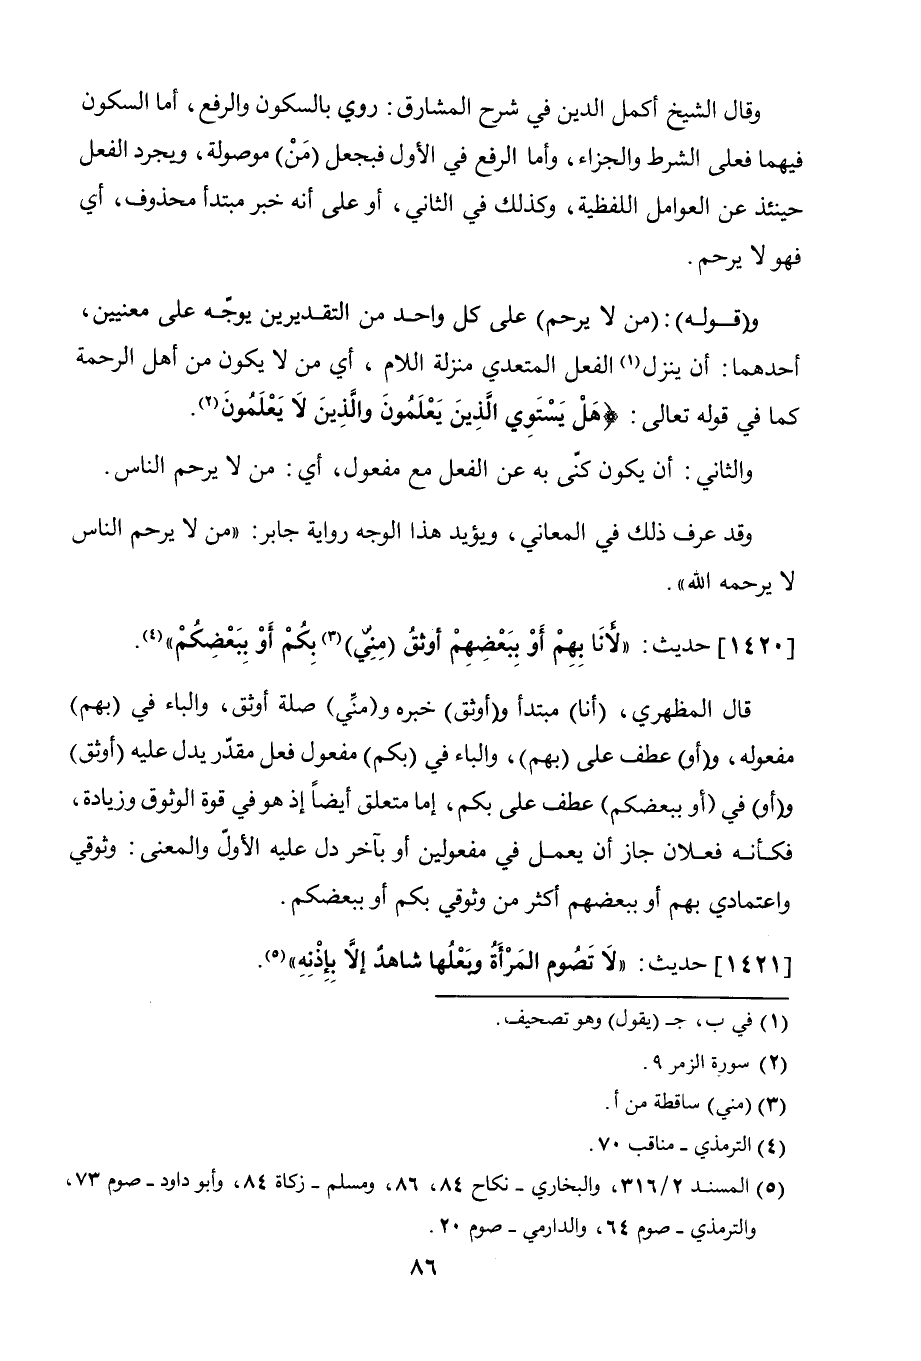 وقال الشيخ أكمل الدين في شرح المشارق: روي بالسكون والرفع، أما السكون
فيهما فعلى الشرط والجزاء، وأما الرفع في الأول فبجعل (مَنْ) موصولة، ويجرد الفعل
حينئذ عن العوامل اللفظية، وكذلك في الثاني، أو على أنه خبر مبتدأ محذوف، أي
فهو لا يرحم.
و(قـولـه): (من لا يرحم) على كل واحـد من التقـديرين يوجّـه على معنيين،
أحدهما: أن ينزل(١) الفعل المتعدي منزلة اللام ، أي من لا يكون من أهل الرحمة
كما في قوله تعالى: ﴿هَلْ يَسْتَوِي الَّذِينَ يَعْلَمُونَ والَّذِينَ لَا يَعْلَمُونَ(٢).
والثاني: أن يكون كنّى به عن الفعل مع مفعول، أي: من لا يرحم الناس.
وقد عرف ذلك في المعاني، ويؤيد هذا الوجه رواية جابر: «من لا يرحم الناس
لا يرحمه الله».
[١٤٢٠] حديث: «لَأَنَا بِهِمْ أَوْ بِبَعْضِهِمْ أوثقُ (مِنِّي)(٣) بِكُمْ أَوْ بِبَعْضِكُمْ»(٤).
قال المظهري، (أنا) مبتدأ و(أوثق) خبره و(منّي) صلة أوثق، والباء في (بهم)
مفعوله، و(أو) عطف على (بهم)، والباء في (بكم) مفعول فعل مقدّر يدل عليه (أوثق)
و(أو) في (أو ببعضكم) عطف على بكم، إما متعلق أيضاً إذ هو في قوة الوثوق وزيادة،
فكـأنـه فعـلان جاز أن يعمـل في مفعولين أو بآخر دل عليه الأولّ والمعنى: وثوقي
واعتمادي بهم أو ببعضهم أكثر من وثوقي بكم أو ببعضكم.
[١٤٢١] حديث: «لَا تَصُوم المَرْأَةُ وبَعْلُها شاهدٌ إلَّا بِإِذْنِهِ»(٥).
(١) في ب، جـ (يقول) وهو تصحيف.
(٢) سورة الزمر ٩.
(٣) (مني) ساقطة من أ.
(٤) الترمذي ـ مناقب ٧٠.
(٥) المسنـد ٣١٦/٢، والبخاري ـ نكاح ٨٤، ٨٦، ومسلم ـ زكاة ٨٤، وأبو داود ـ صوم ٧٣،
والترمذي ـ صوم ٦٤، والدارمي ـ صوم ٢٠.
٨٦